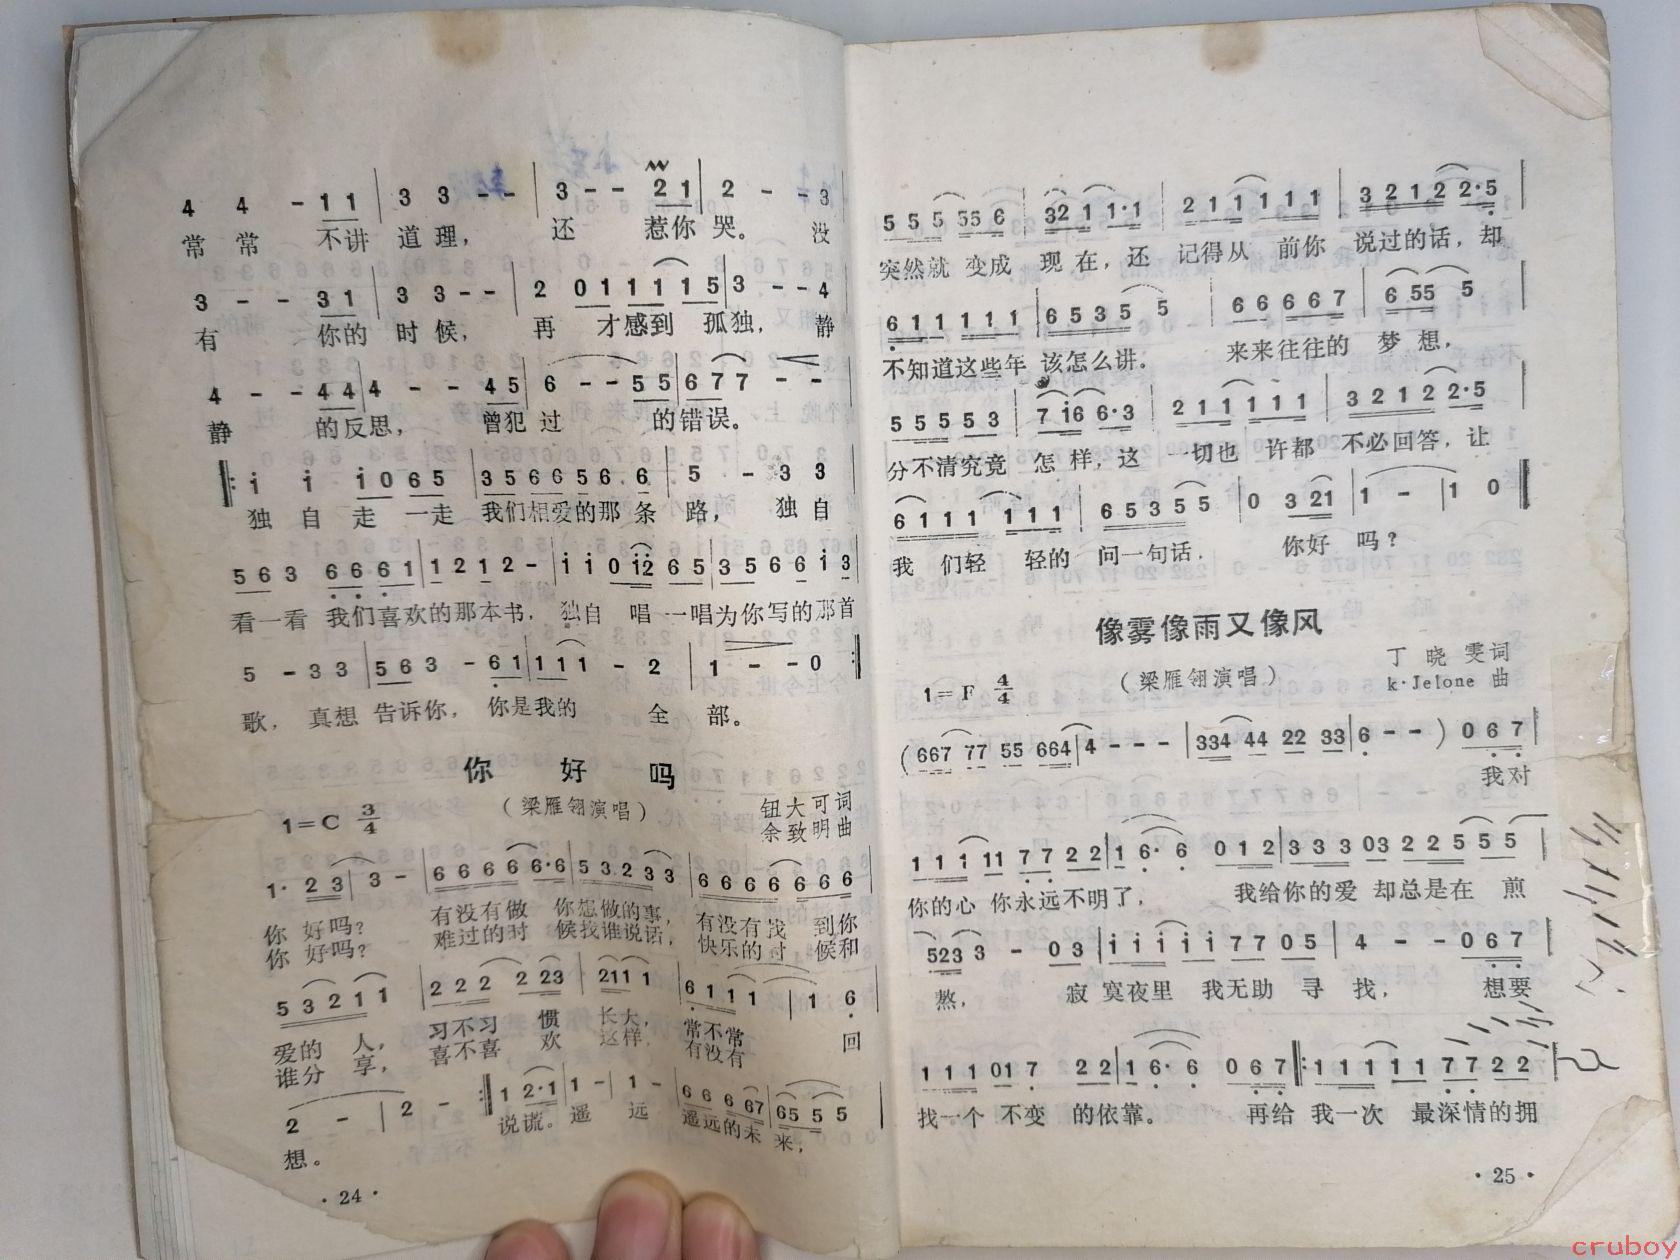 4 4 - 1 1 | 3 3 - - | 3 - - 2 1 | 2 - - 3
常 常 不讲 道理， 还 惹你 哭。 没
3 - - 3 1 | 3 3 - - | 2 0 1 1 1 1 5 | 3 - - 4
有 你的 时候， 再 才感到 孤独， 静
4 - - 4 4 | 4 - - 4 5 | 6 - - 5 5 | 6 7 7 - -
静 的反思， 曾犯过 的错误。
‖: i i i 0 6 5 | 3 5 6 6 5 6 · 6 | 5 - 3 3
独 自 走 一走 我们相爱的那 条 路， 独自
5 6 3 6 6 6 1 | 1 2 1 2 - | i i 0 i2 6 5 | 3 5 6 6 i 3
看一看 我们喜欢的那本书， 独自 唱一唱为你写的那首
5 - 3 3 | 5 6 3 - 6 1 | 1 1 1 - 2 | 1 - - 0 :‖
歌， 真想 告诉你， 你是我的 全 部。
你 好 吗
1=C 3/4 （梁雁翎演唱） 钮大可词
余致明曲
1· 2 3 | 3 - | 6 6 6 6 6·6 | 5 3 2 3 3 | 6 6 6 6 6 6 6
你 好吗？ 有没有做 你想做的事， 有没有找 到你
你 好吗？ 难过的时 候找谁说话， 快乐的时 候和
5 3 2 1 1 | 2 2 2 2 23 | 211 1 | 6 1 1 1 | 1 6
爱的 人， 习不习 惯 长大， 常不常 回
谁分 享， 喜不喜 欢 这样， 有没有
2 - | 2 - :‖ 1 2·1 | 1 - 1 - | 6 6 6 67 | 65 5 5
想。 说谎。遥 远 遥远的未 来，
· 24 ·
5 5 5 55 6 | 321 1·1 | 2 1 1 1 1 1 | 3 2 1 2 2·5
突然就 变成 现 在，还 记得从 前你 说过的话，却
6 1 1 1 1 1 | 6 5 3 5 5 | 6 6 6 6 7 | 6 55 5
不知道这些年 该怎么讲。 来来往往的 梦 想，
5 5 5 5 3 | 7 i6 6·3 | 2 1 1 1 1 1 | 3 2 1 2 2·5
分不清究竟 怎 样，这 一切也 许都 不必回答，让
6 1 1 1 1 1 1 | 6 5 3 5 5 | 0 3 21 | 1 - | 1 0 ‖
我 们轻 轻的 问一句话， 你好 吗？
像雾像雨又像风
1=F 4/4 （梁雁翎演唱） 丁 晓 雯词
k·Jelone 曲
（667 77 55 664 | 4 - - - | 334 44 22 33 | 6 - - ） 0 6 7
我对
1 1 1 11 7 7 2 2 | 1 6· 6 0 1 2 | 3 3 3 03 2 2 5 5 5
你的心 你永远不明了， 我给你的爱 却总是在 煎
523 3 - 0 3 | i i i i i 7 7 0 5 | 4 - - 0 6 7
熬， 寂 寞夜里 我无助 寻 找， 想要
1 1 1 01 7 2 2 | 1 6· 6 0 6 7 ‖: 1 1 1 1 1 7 7 2 2
找一个 不变 的依靠。 再给 我一次 最深情的拥
· 25 ·
cruboy